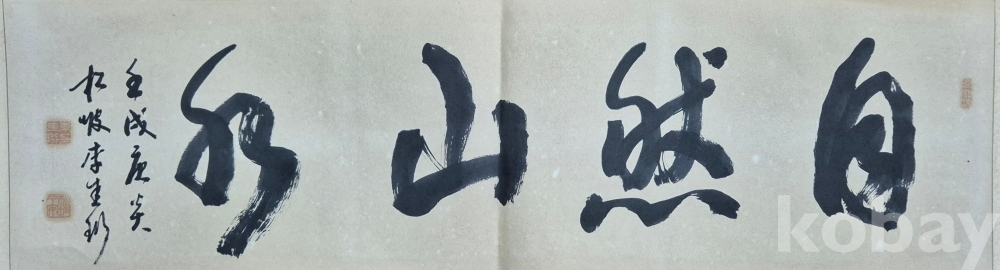 自然山水
壬戌庚炎
松坡李
kobay